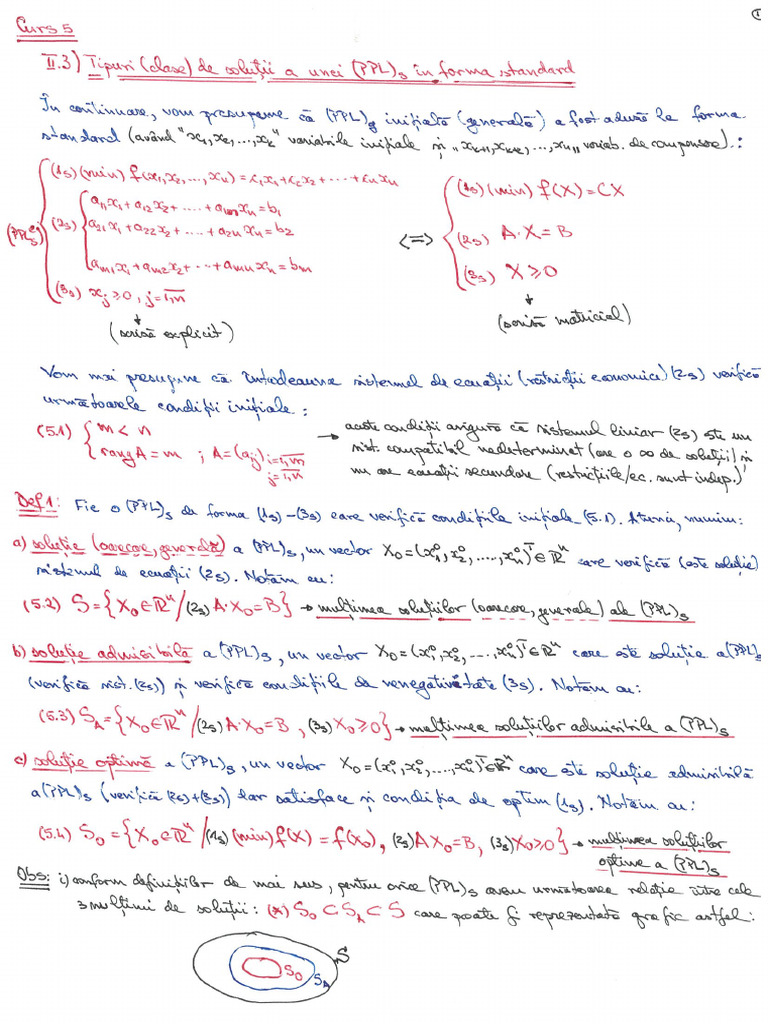 ①
Curs 5
II.3) Tipuri (clase) de soluții a unei (PPL)s în forma standard
În continuare, vom presupune că (PPL)g inițială (generală) a fost adusă la forma
standard (având "x1,x2,...,xk" variabile inițiale și „xk+1,xk+2,...,xn„ variab. de compensare).:
(PPLs^e) { (1s) (min) f(x1,x2,...,xn)=c1x1+c2x2+....+cnxn
(2s) { a11x1+a12x2+....+a1nxn=b1
a21x1+a22x2+....+a2nxn=b2
am1x1+am2x2+...+amnxn=bm
(3s) xj≥0, j=1,n
↓
(scrisă explicit)
<=>
{ (1s) (min) f(X)=CX
(2s) A·X=B
(3s) X≥0
↓
(scrisă matricial)
Vom mai presupune că întodeauna sistemul de ecuații (restricții economice) (2s) verifică
următoarele condiții inițiale:
(5.1) { m<n
rang A=m ; A=(aij) i=1,m j=1,n
→ aceste condiții asigură că sistemul liniar (2s) este un
sist. compatibil nedeterminat (are o ∞ de soluții) și
nu are ecuații secundare (restricțiile/ec. sunt indep.)
Def1: Fie o (PPL)s de forma (1s)-(3s) care verifică condițiile inițiale (5.1). Atunci, numim:
a) soluție (oarecare, generală) a (PPL)s, un vector X0=(x1°,x2°,....,xn°)^T∈ℝ^n care verifică (este soluție)
sistemul de ecuații (2s). Notăm cu:
(5.2) S={X0∈ℝ^n/(2s) A·X0=B} → mulțimea soluțiilor (oarecare, generale) ale (PPL)s
b) soluție admisibilă a (PPL)s, un vector X0=(x1°,x2°,....,xn°)^T∈ℝ^n care este soluție a (PPL)s
(verifică sist.(2s)) și verifică condițiile de nenegativitate (3s). Notăm cu:
(5.3) SA={X0∈ℝ^n/(2s) A·X0=B, (3s) X0≥0} → mulțimea soluțiilor admisibile a (PPL)s
c) soluție optimă a (PPL)s, un vector X0=(x1°,x2°,....,xn°)^T∈ℝ^n care este soluție admisibilă
a (PPL)s (verifică (2s)+(3s)) dar satisface și condiția de optim (1s). Notăm cu:
(5.4) S0={X0∈ℝ^n/(1s) (min) f(X)=f(X0), (2s) AX0=B, (3s) X0≥0} → mulțimea soluțiilor
optime a (PPL)s
Obs: i) conform definițiilor de mai sus, pentru orice (PPL)s avem următoarea relație între cele
3 mulțimi de soluții: (*) S0⊂SA⊂S care poate fi reprezentată grafic astfel:
S0 SA S